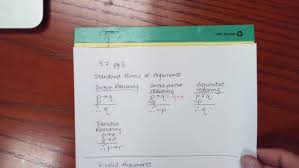 3.7 pg 3
Standard forms of Arguments
Direct Reasoning
p→q
p
∴ q
Contrapositive Reasoning
p→q
~q
∴ ~p
Disjunctive Reasoning
p∨q
~p
∴ q
Transitive Reasoning
p→q
q→r
∴ p→r
Invalid Arguments